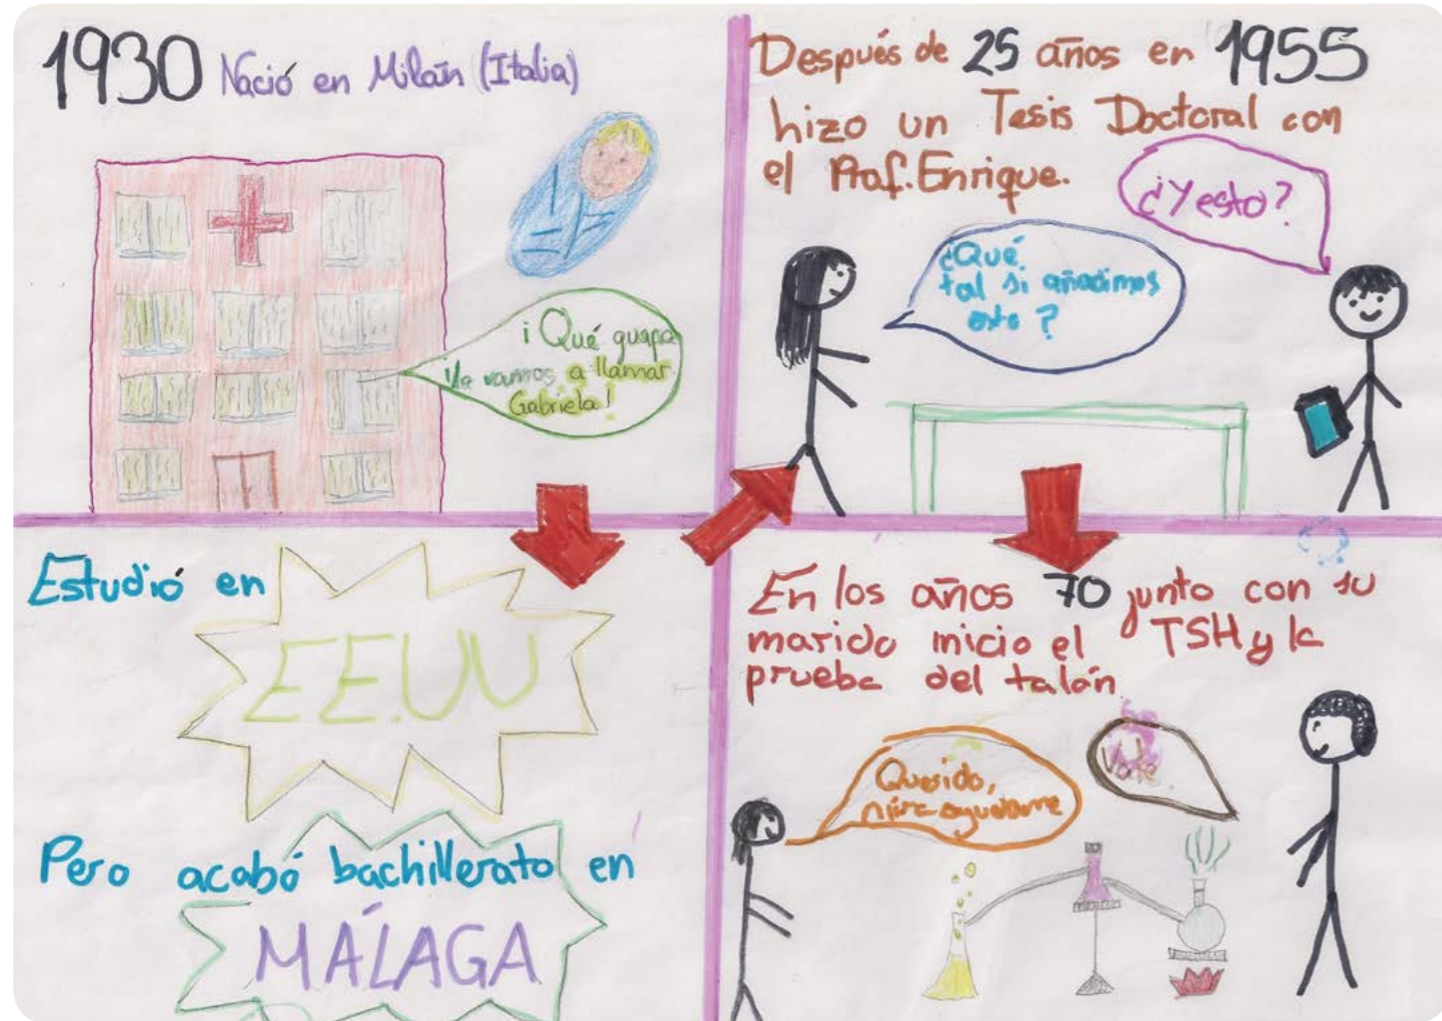 1930 Nació en Milán (Italia)
¡Qué guapa
¡la vamos a llamar
Gabriela!
Estudió en
EE.UU
Pero acabó bachillerato en
MÁLAGA
Después de 25 años en 1955
hizo un Tesis Doctoral con
el Prof. Enrique.
¿Y esto?
¿Qué
tal si añadimos
esto?
En los años 70 junto con su
marido inicio el TSH y la
prueba del talón
Querido,
ayudame
Vale